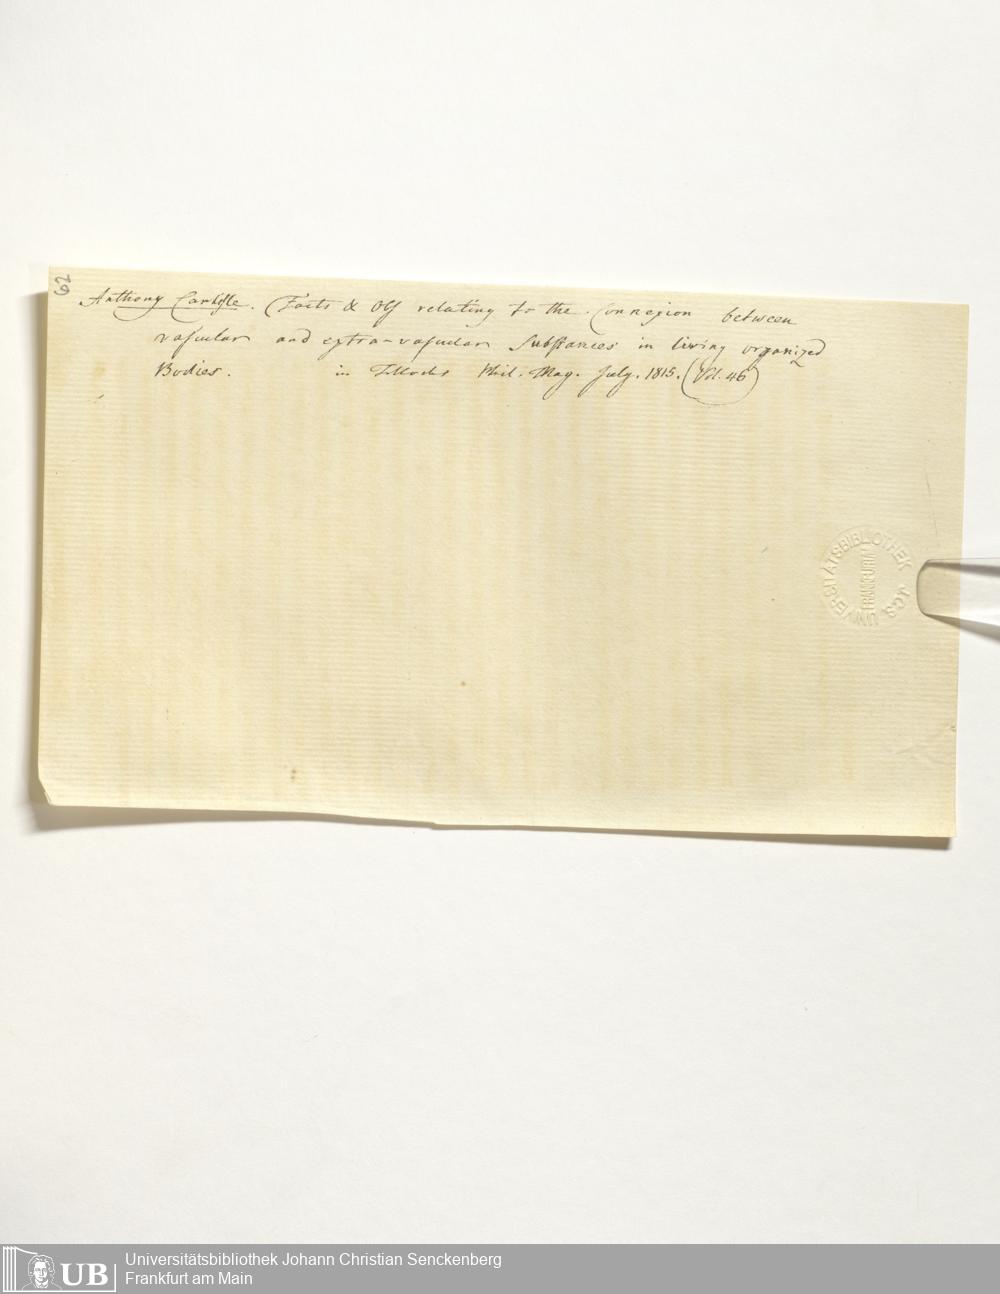 62
Anthony Carlisle. Facts & Obs relating to the Connexion between
vascular and extra-vascular Substances in living organized
Bodies. in Tillochs Phil. Mag. July. 1815. (Vol. 46)
UNIVERSITÄTSBIBLIOTHEK J.C.S. FRANKFURT/M
UB
Universitätsbibliothek Johann Christian Senckenberg
Frankfurt am Main